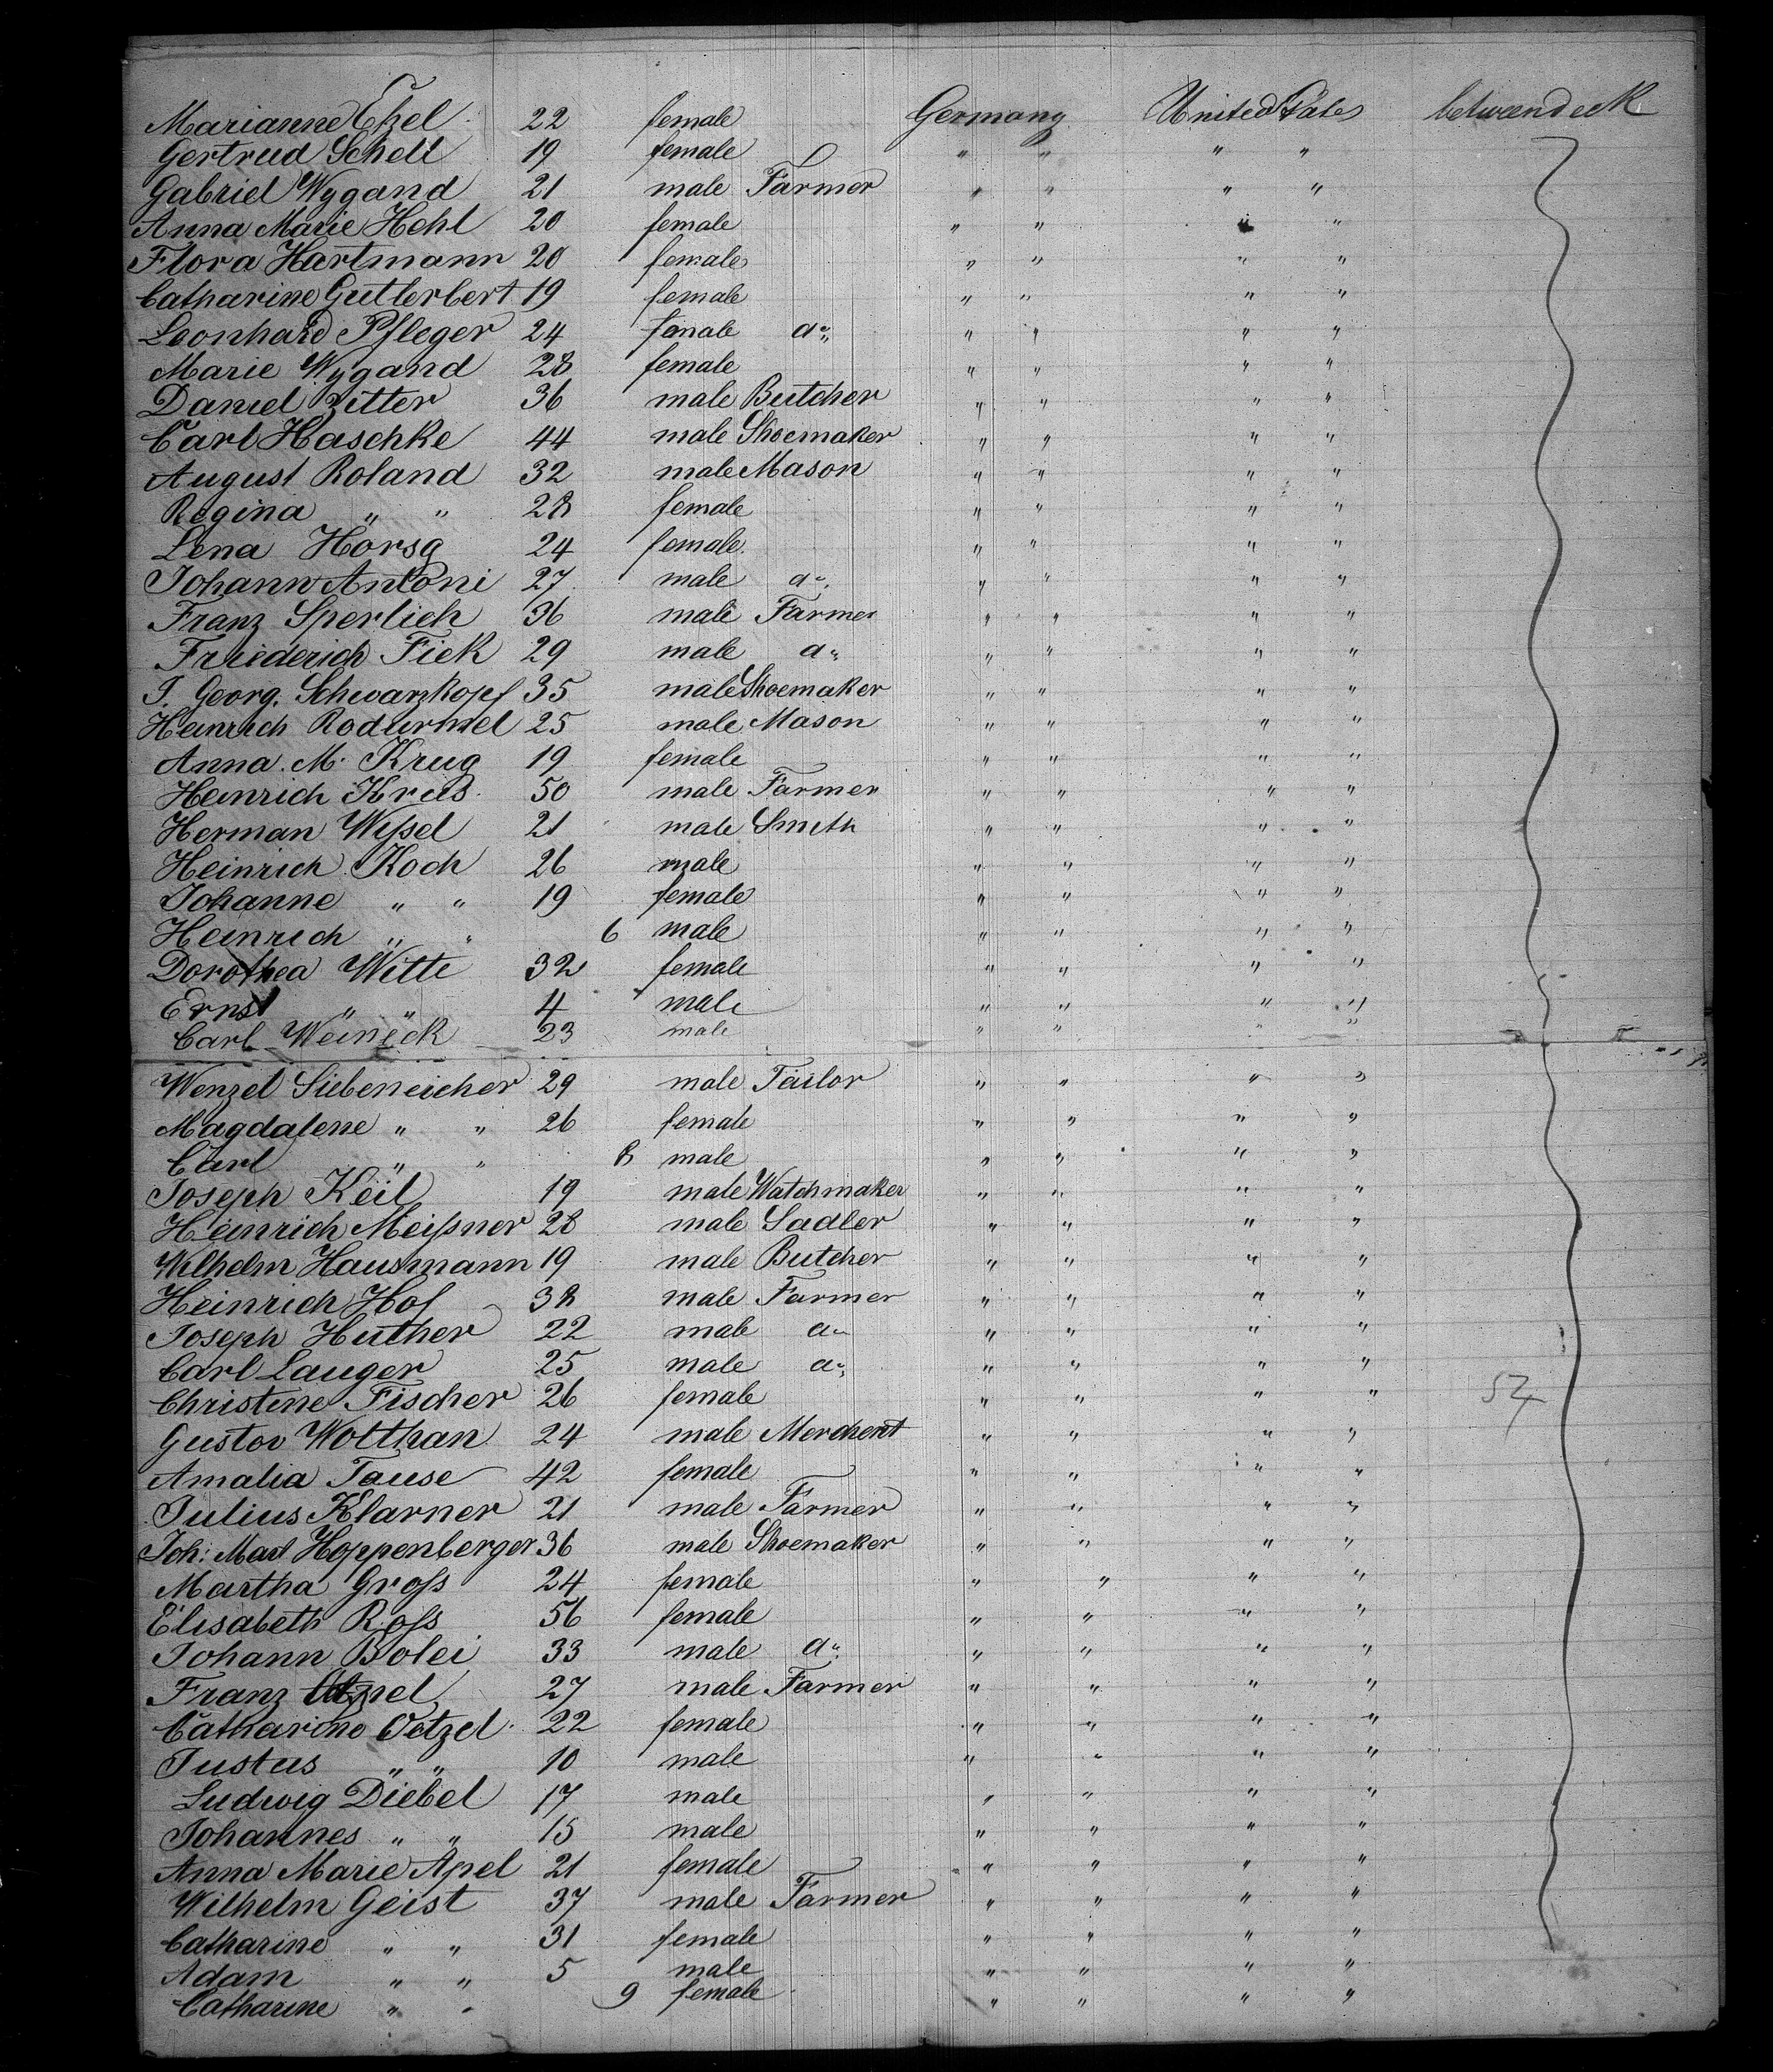 Marianne Etzel 22 female Germany United States betweendeck
Gertrud Schell 19 female " " " "
Gabriel Wygand 21 male Farmer " " " "
Anna Marie Hehl 20 female " " " "
Flora Hartmann 20 female " " " "
Catharine Gutlerbert 19 female " " " "
Leonhard Pfleger 24 female a" " " " "
Marie Wygand 28 female " " " "
Daniel Zitter 36 male Butcher " " " "
Carl Haschke 44 male Shoemaker " " " "
August Roland 32 male Mason " " " "
Regina " " 28 female " " " "
Lena Horsg 24 female " " " "
Johann Antoni 27 male a" " " " "
Franz Sperlich 36 male Farmer " " " "
Friederich Fick 29 male a" " " " "
J. Georg. Schwarzkopf 35 male Shoemaker " " " "
Heinrich Rodurmel 25 male Mason " " " "
Anna M. Krug 19 female " " " "
Heinrich Krus 50 male Farmer " " " "
Herman Weßel 21 male Smith " " " "
Heinrich Koch 26 male " " " "
Johanne " " 19 female " " " "
Heinrich " " 6 male " " " "
Dorothea Witte 32 female " " " "
Ernst " " 4 male " " " "
Carl Weineck 23 male " " " "
Wenzel Siebeneicher 29 male Tailor " " " "
Magdalene " " 26 female " " " "
Carl " " 8 male " " " "
Joseph Keil 19 male Watchmaker " " " "
Heinrich Meißner 28 male Sadler " " " "
Wilhelm Hausmann 19 male Butcher " " " "
Heinrich Hof 38 male Farmer " " " "
Joseph Huther 22 male a" " " " "
Carl Lauger 25 male a" " " " "
Christine Fischer 26 female " " " "
Gustov Wolthan 24 male Merchent " " " "
Amalia Tause 42 female " " " "
Julius Klarner 21 male Farmer " " " "
Joh: Mart Hoppenberger 36 male Shoemaker " " " "
Martha Groß 24 female " " " "
Elisabeth Roß 56 female " " " "
Johann Bolei 33 male a" " " " "
Franz 27 male Farmer " " " "
Catharine Oetzel 22 female " " " "
Justus " " 10 male " " " "
Ludwig Diebel 17 male " " " "
Johannes " " 15 male " " " "
Anna Marie Apel 21 female " " " "
Wilhelm Geist 37 male Farmer " " " "
Catharine " " 31 female " " " "
Adam " " 5 male " " " "
Catharine " " 9 female " " " "